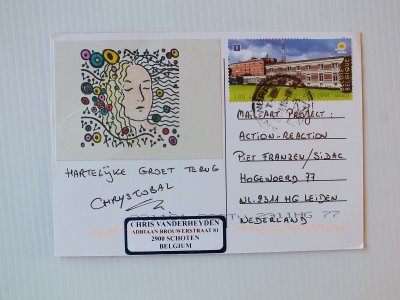 HARTELIJKE GROET TERUG
CHRYSTOBAL
CHRIS VANDERHEYDEN
ADRIAAN BROUWERSTRAAT 81
2900 SCHOTEN
BELGIUM
MAIL-ART PROJECT:
ACTION-REACTION
PIET FRANZEN/SIDAC
HOGEWOERD 77
NL-2311 HG LEIDEN
NEDERLAND
2311HG 77